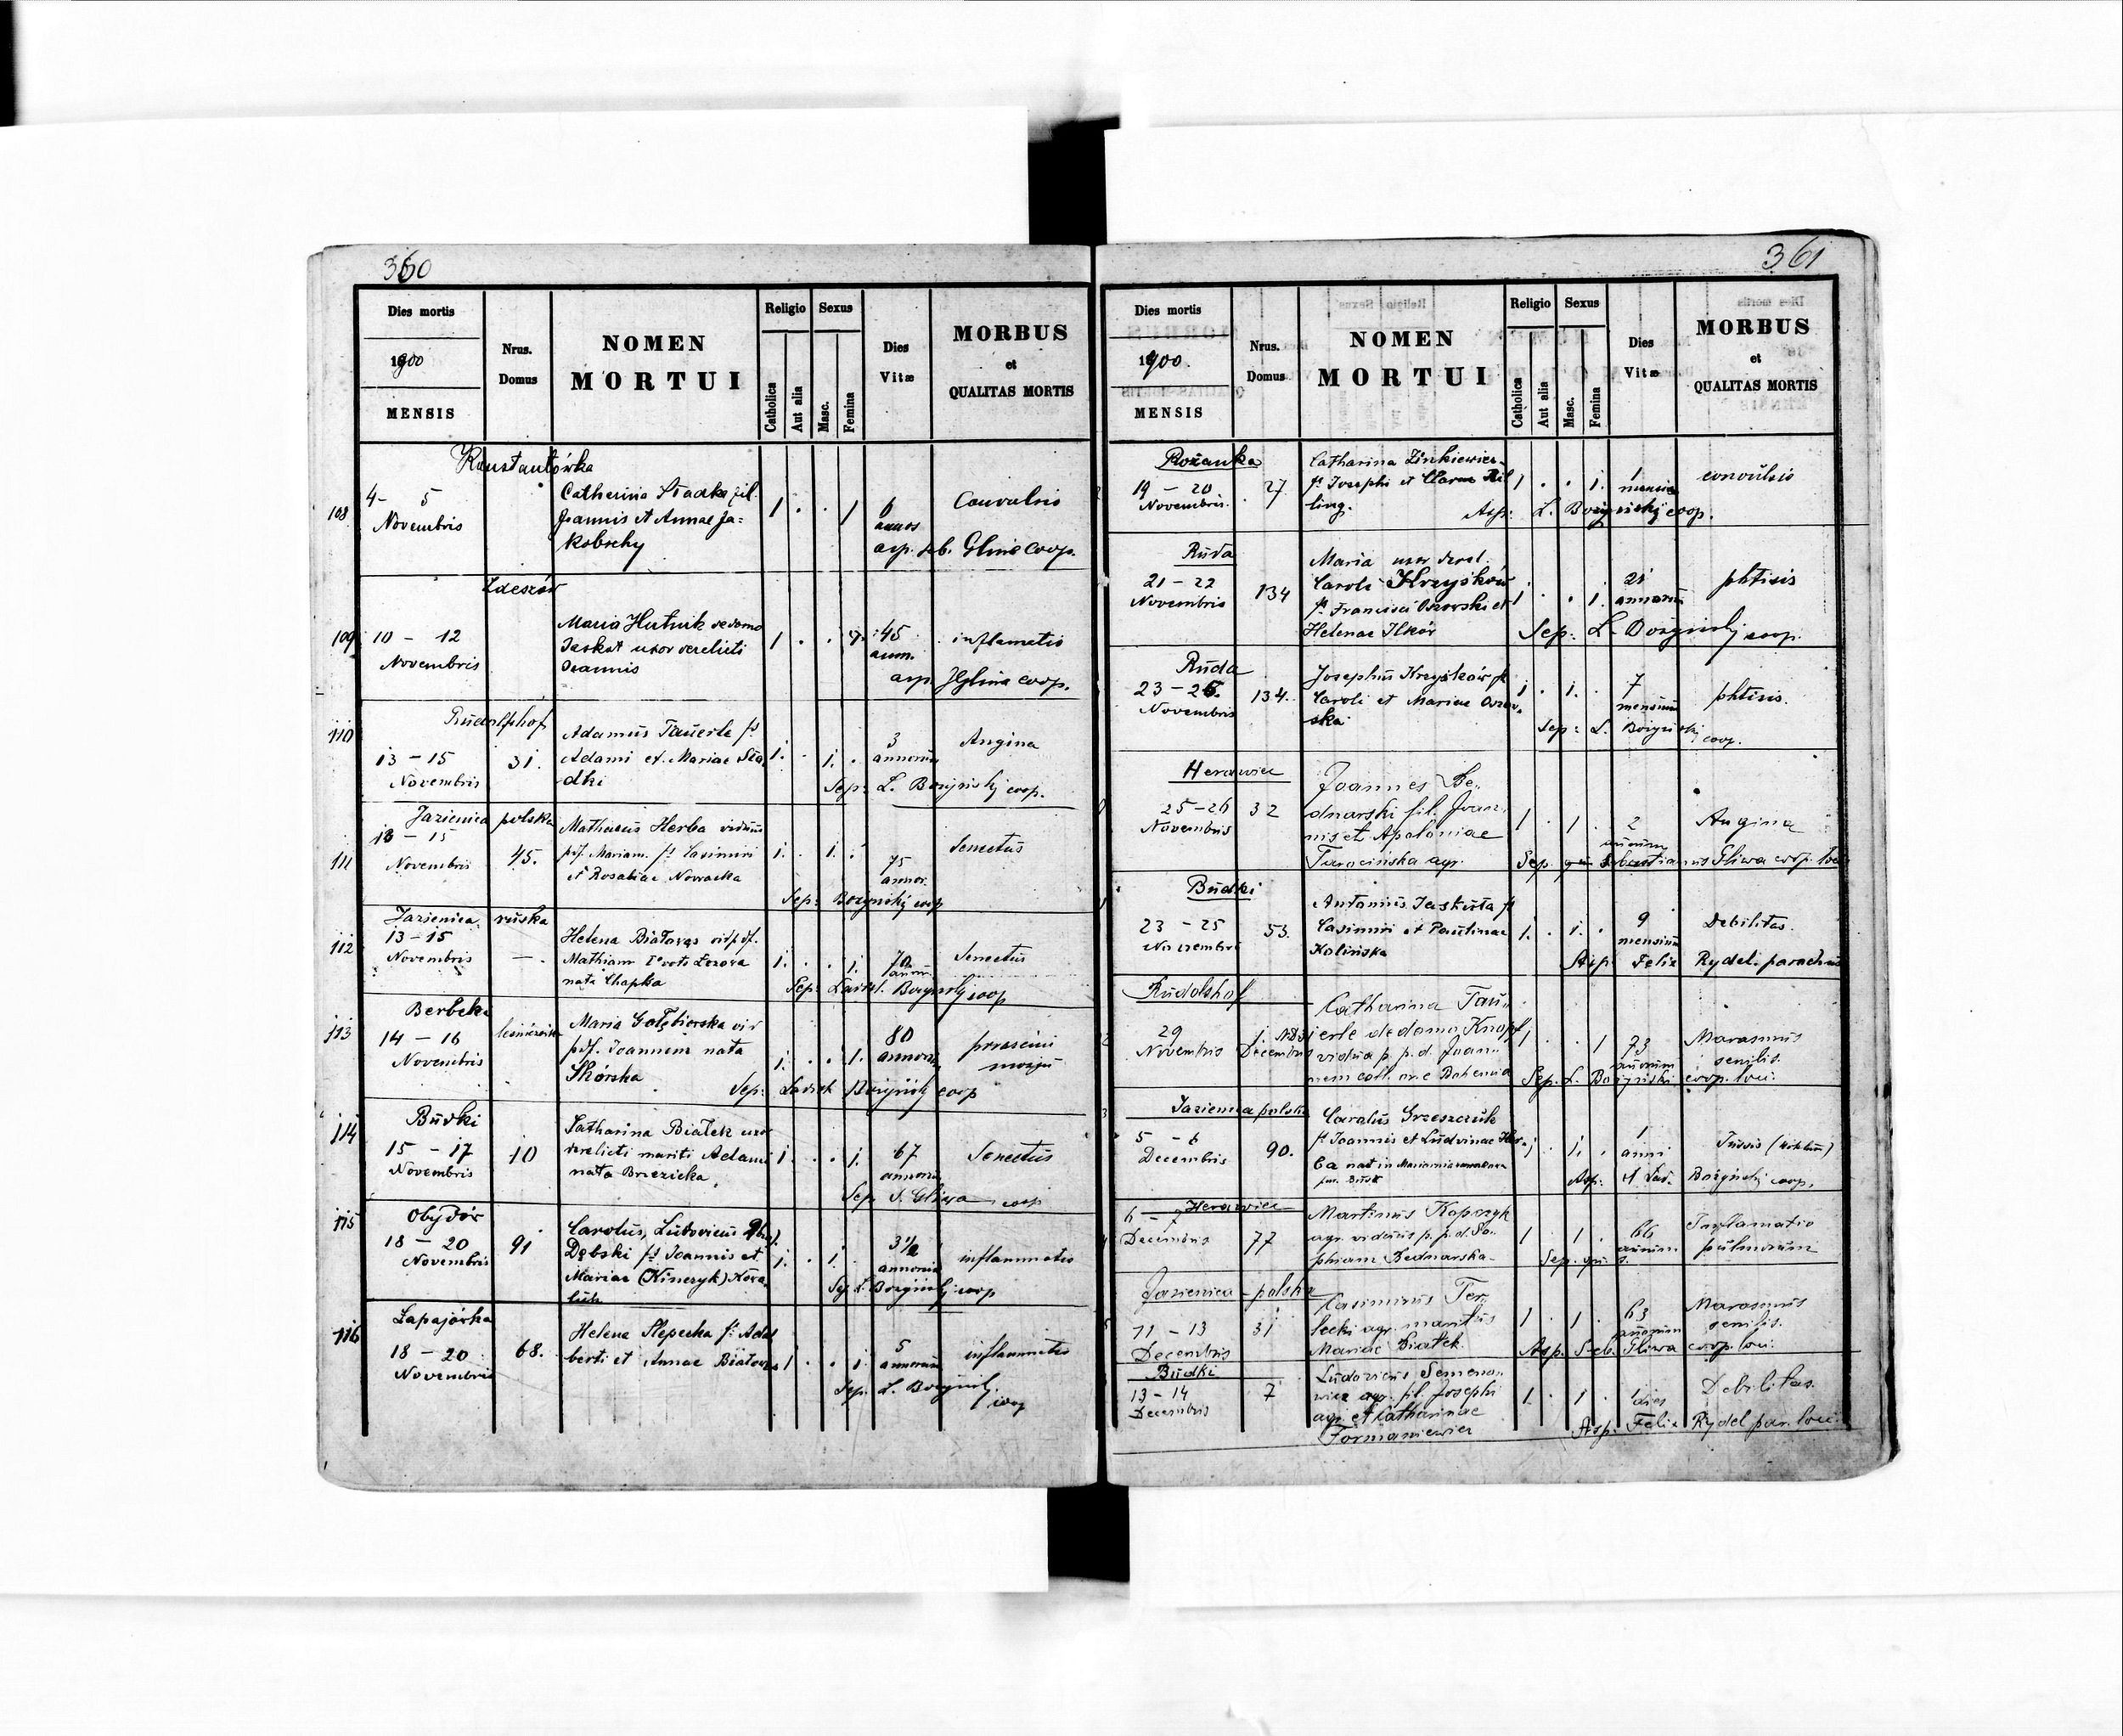 360
Dies mortis
1900
MENSIS
Nrus.
Domus
NOMEN
MORTUI
Religio
Catholica
Aut alia
Sexus
Masc.
Femina
Dies
Vitæ
MORBUS
et
QUALITAS MORTIS
Konstantówka
108
4 - 5
Novembris
Catherina Sradka fil.
Joannis et Annae Ja-
kobschy
1 . . 1
6
annos
Convulsio
asp. seb. Gliwa coop.
109
10 - 12
Novembris
Maria Hutnik de domo
Jaskot uxor derelicti
Joannis
1 . .
45
ann.
inflamatio
asp. Gliwa coop.
Rudolfshof
110
13 - 15
Novembris
31.
Adamus Tauerle fs
Adami et Mariae Sra
dki
1. . 1. .
3
annorum
Angina
Sep: L. Bozyński coop.
Jazienica polska
111
13 - 15
Novembris
45.
Mathaeus Herba viduus
pdf. Mariam. fs Casimiri
et Rosaliae Nowacka
1. . 1. .
75
annor.
Senectus
Sep: Bozyński coop
Jazienica ruska
112
13 - 15
Novembris
—.
Helena Białowąs vid pdf.
Mathiam
nata Chapka
1. . . 1.
70
annor.
Senectus
Sep: Ladisl. Bozyński coop
Berbeki
113
14 - 16
Novembris
Maria Gołębiorska vid
pdf. Joannem nata
Skórska
1. . . 1.
80
annorum
Sep: Ladisl. Bozyński coop
Budki
114
15 - 17
Novembris
10
Catharina Białek uxor
derelicti mariti Adami
nata Brzezicka
1. . . 1.
67
annorum
Senectus
Sep S. Gliwa coop
Obydów
115
18 - 20
Novembris
91
Carolus, Ludovicus
Dębski fs Joannis et
Mariae (Kinczyk) Kowa
luk
1. . 1.
3 1/2
annorum
inflammatio
Sep L. Bozyński coop
Łapajówka
116
18 - 20
Novembris
68.
Helena Slepecka fs Adal
berti et Annae Białowąs
1 . . 1
5
annorum
inflammatio
Sep. L. Bozyński
coop
361
Dies mortis
1900.
MENSIS
Nrus.
Domus
NOMEN
MORTUI
Religio
Catholica
Aut alia
Sexus
Masc.
Femina
Dies
Vitæ
MORBUS
et
QUALITAS MORTIS
Rożanka
19 - 20
Novembris.
27.
Catharina Zinkiewicz
fs Josephi et Clarae Bil
ling.
1 . . 1.
1
mensis
convulsio
Asp: L. Bozyński coop.
Ruda
21 - 22
Novembris
134
Maria uxor derel.
Caroli Krzyśków
fs Francisci Oszowski et
Helenae Ilków
1 . . 1.
21
annorum
phtisis
Sep: L. Bozyński coop.
Ruda
23 - 25.
Novembris
134.
Josephus Krzyśków fs
Caroli et Mariae Oszow-
ska
1 . 1. .
7
mensium
phtisis.
Sep: L. Bozyński
coop.
Herawiec
25 - 26
Novembris
32
Joannes Be-
dnarski fil. Joan-
nis et Apoloniae
Tarocińska agr.
1 . 1 .
2
annorum
Angina
Sep. Sebastianus Gliwa coop. loci
Budki
23 - 25
Novembris
53.
Antonius Jaskuta fs
Casimiri et Paulinae
Kolińska
1. . 1. .
9
mensium
Debilitas.
Asp. Felix Rydel. parochus
Rudolshof
29
Novembris
1.
Decembris
Catharina Tau-
erle de domo Knopf
vidua p. p. d. Joan-
nem coll. ex Bohemia
1 . . 1
73
annorum
Marasmus
senilis.
Sep. L. Bozyński coop. loci.
Jazienica polska
5 - 6
Decembris
90.
Carolus Grzeszczuk
fs Joannis et Ludvinae Her-
ba nat in
par. Busk
1 . 1. .
1
anni
Tussis (koklusz)
Asp: Lad. Bozyński coop.
Herawiec
6 - 7
Decembris
77
Martinus Kopczyk
agr. viduus p. p. d. So-
phiam Bednarska
1 . 1 .
66
annorum
Inflamatio
pulmonum
Sep.
Jazienica - polska
11 - 13
Decembris
31
Casimirus Ter-
lecki agr. maritus
Mariae Białek.
1 . 1 .
63
annorum
Marasmus
senilis.
Asp. Seb. Gliwa coop. loci.
Budki
13 - 14
Decembris
7
Ludovicus Semeno-
wicz agr. fil. Josephi
agr. et Catharinae
Formaniewicz
1. . 1 .
1 dies
Debilitas.
Asp. Felix Rydel par. loci.